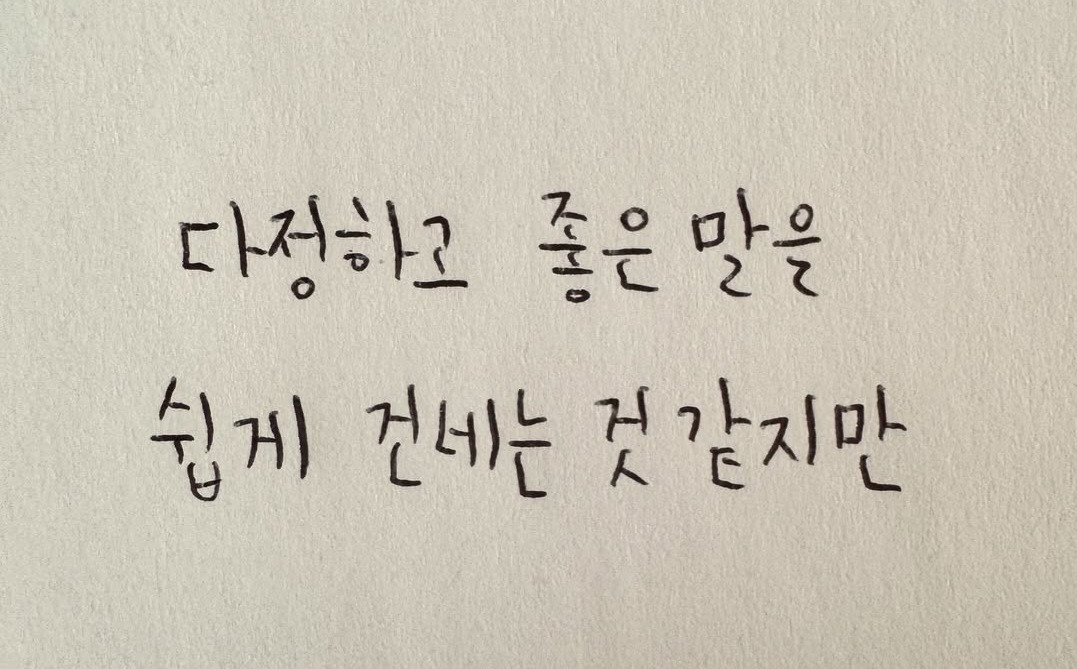 다정하고 좋은 말을
쉽게 건네는 것 같지만